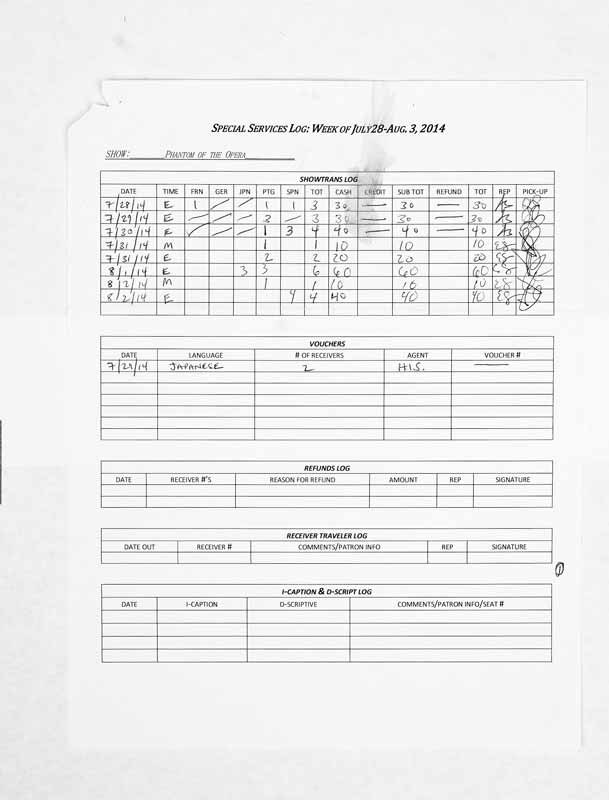 SPECIAL SERVICES LOG: WEEK OF JULY28-AUG. 3, 2014
SHOW: PHANTOM OF THE OPERA
SHOWTRANS LOG
DATE TIME FRN GER JPN PTG SPN TOT CASH CREDIT SUB TOT REFUND TOT REP PICK-UP
7/28/14 E 1 — — 1 1 3 30 — 30 — 30
7/29/14 E — — — 3 — 3 30 — 30 — 30
7/30/14 E — — — 1 3 4 40 — 40 — 40
7/31/14 M 1 1 10 10 10
7/31/14 E 2 2 20 20 20
8/1/14 E 3 3 6 60 60 60
8/2/14 M 1 1 10 10 10
8/2/14 E 4 4 40 40 40
VOUCHERS
DATE LANGUAGE # OF RECEIVERS AGENT VOUCHER #
7/29/14 JAPANESE 2 H.I.S. —
REFUNDS LOG
DATE RECEIVER #'S REASON FOR REFUND AMOUNT REP SIGNATURE
RECEIVER TRAVELER LOG
DATE OUT RECEIVER # COMMENTS/PATRON INFO REP SIGNATURE
I-CAPTION & D-SCRIPT LOG
DATE I-CAPTION D-SCRIPTIVE COMMENTS/PATRON INFO/SEAT #